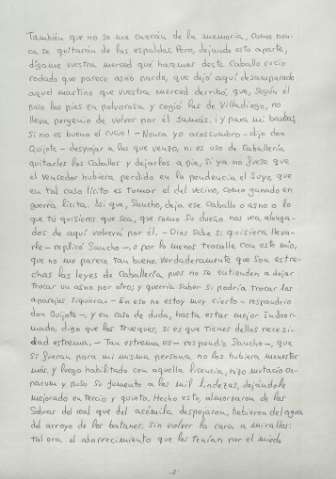 También que no se me caerán de la memoria, como nun-
ca se quitarán de las espaldas. Pero, dejando esto aparte,
dígame vuestra merced qué haremos deste caballo rucio
rodado que parece asno pardo, que dejó aquí desamparado
aquel martino que vuestra merced derribó; que, según él
puso los pies en polvorosa y cogió las de Villadiego, no
lleva pergenio de volver por él jamás. ¡Y para mis barbas,
si no es bueno el rucio! - Nunca yo acostumbro - dijo don
Quijote - despojar a los que venzo, ni es uso de caballería
quitarles los caballos y dejarlos a pie, si ya no fuese que
el vencedor hubiera perdido en la pendencia el suyo, que
en tal caso lícito es tomar el del vecino, como ganado en
guerra lícita. Así que, Sancho, deja ese caballo o asno o lo
que tú quisieres que sea, que como su dueño nos vea alonga-
dos de aquí volverá por él. - Dios sabe si quisiera lleva-
rle - replicó Sancho -, o por lo menos trocalle con este mío,
que no me parece tan bueno. Verdaderamente que son estre-
chas las leyes de caballería, pues no se estienden a dejar
trocar un asno por otro; y querría saber si podría trocar los
aparejos siquiera. - En eso no estoy muy cierto - respondió
don Quijote -, y en caso de duda, hasta estar mejor infor-
mado, digo que los trueques, si es que tienes dellos necesi-
dad estrema. - Tan estrema es - respondió Sancho -, que
si fueran para mi misma persona, no los hubiera menester
más, y luego habilitado con aquella licencia, hizo mutacio ca-
parum y puso su jumento a las mil lindezas, dejándole
mejorado en tercio y quinto. Hecho esto, almorzaron de las
sobras del real que del acémila despojaron, bebieron del agua
del arroyo de los batanes, sin volver la cara a mirallos:
tal era el aborrecimiento que les tenían por el miedo
-2-